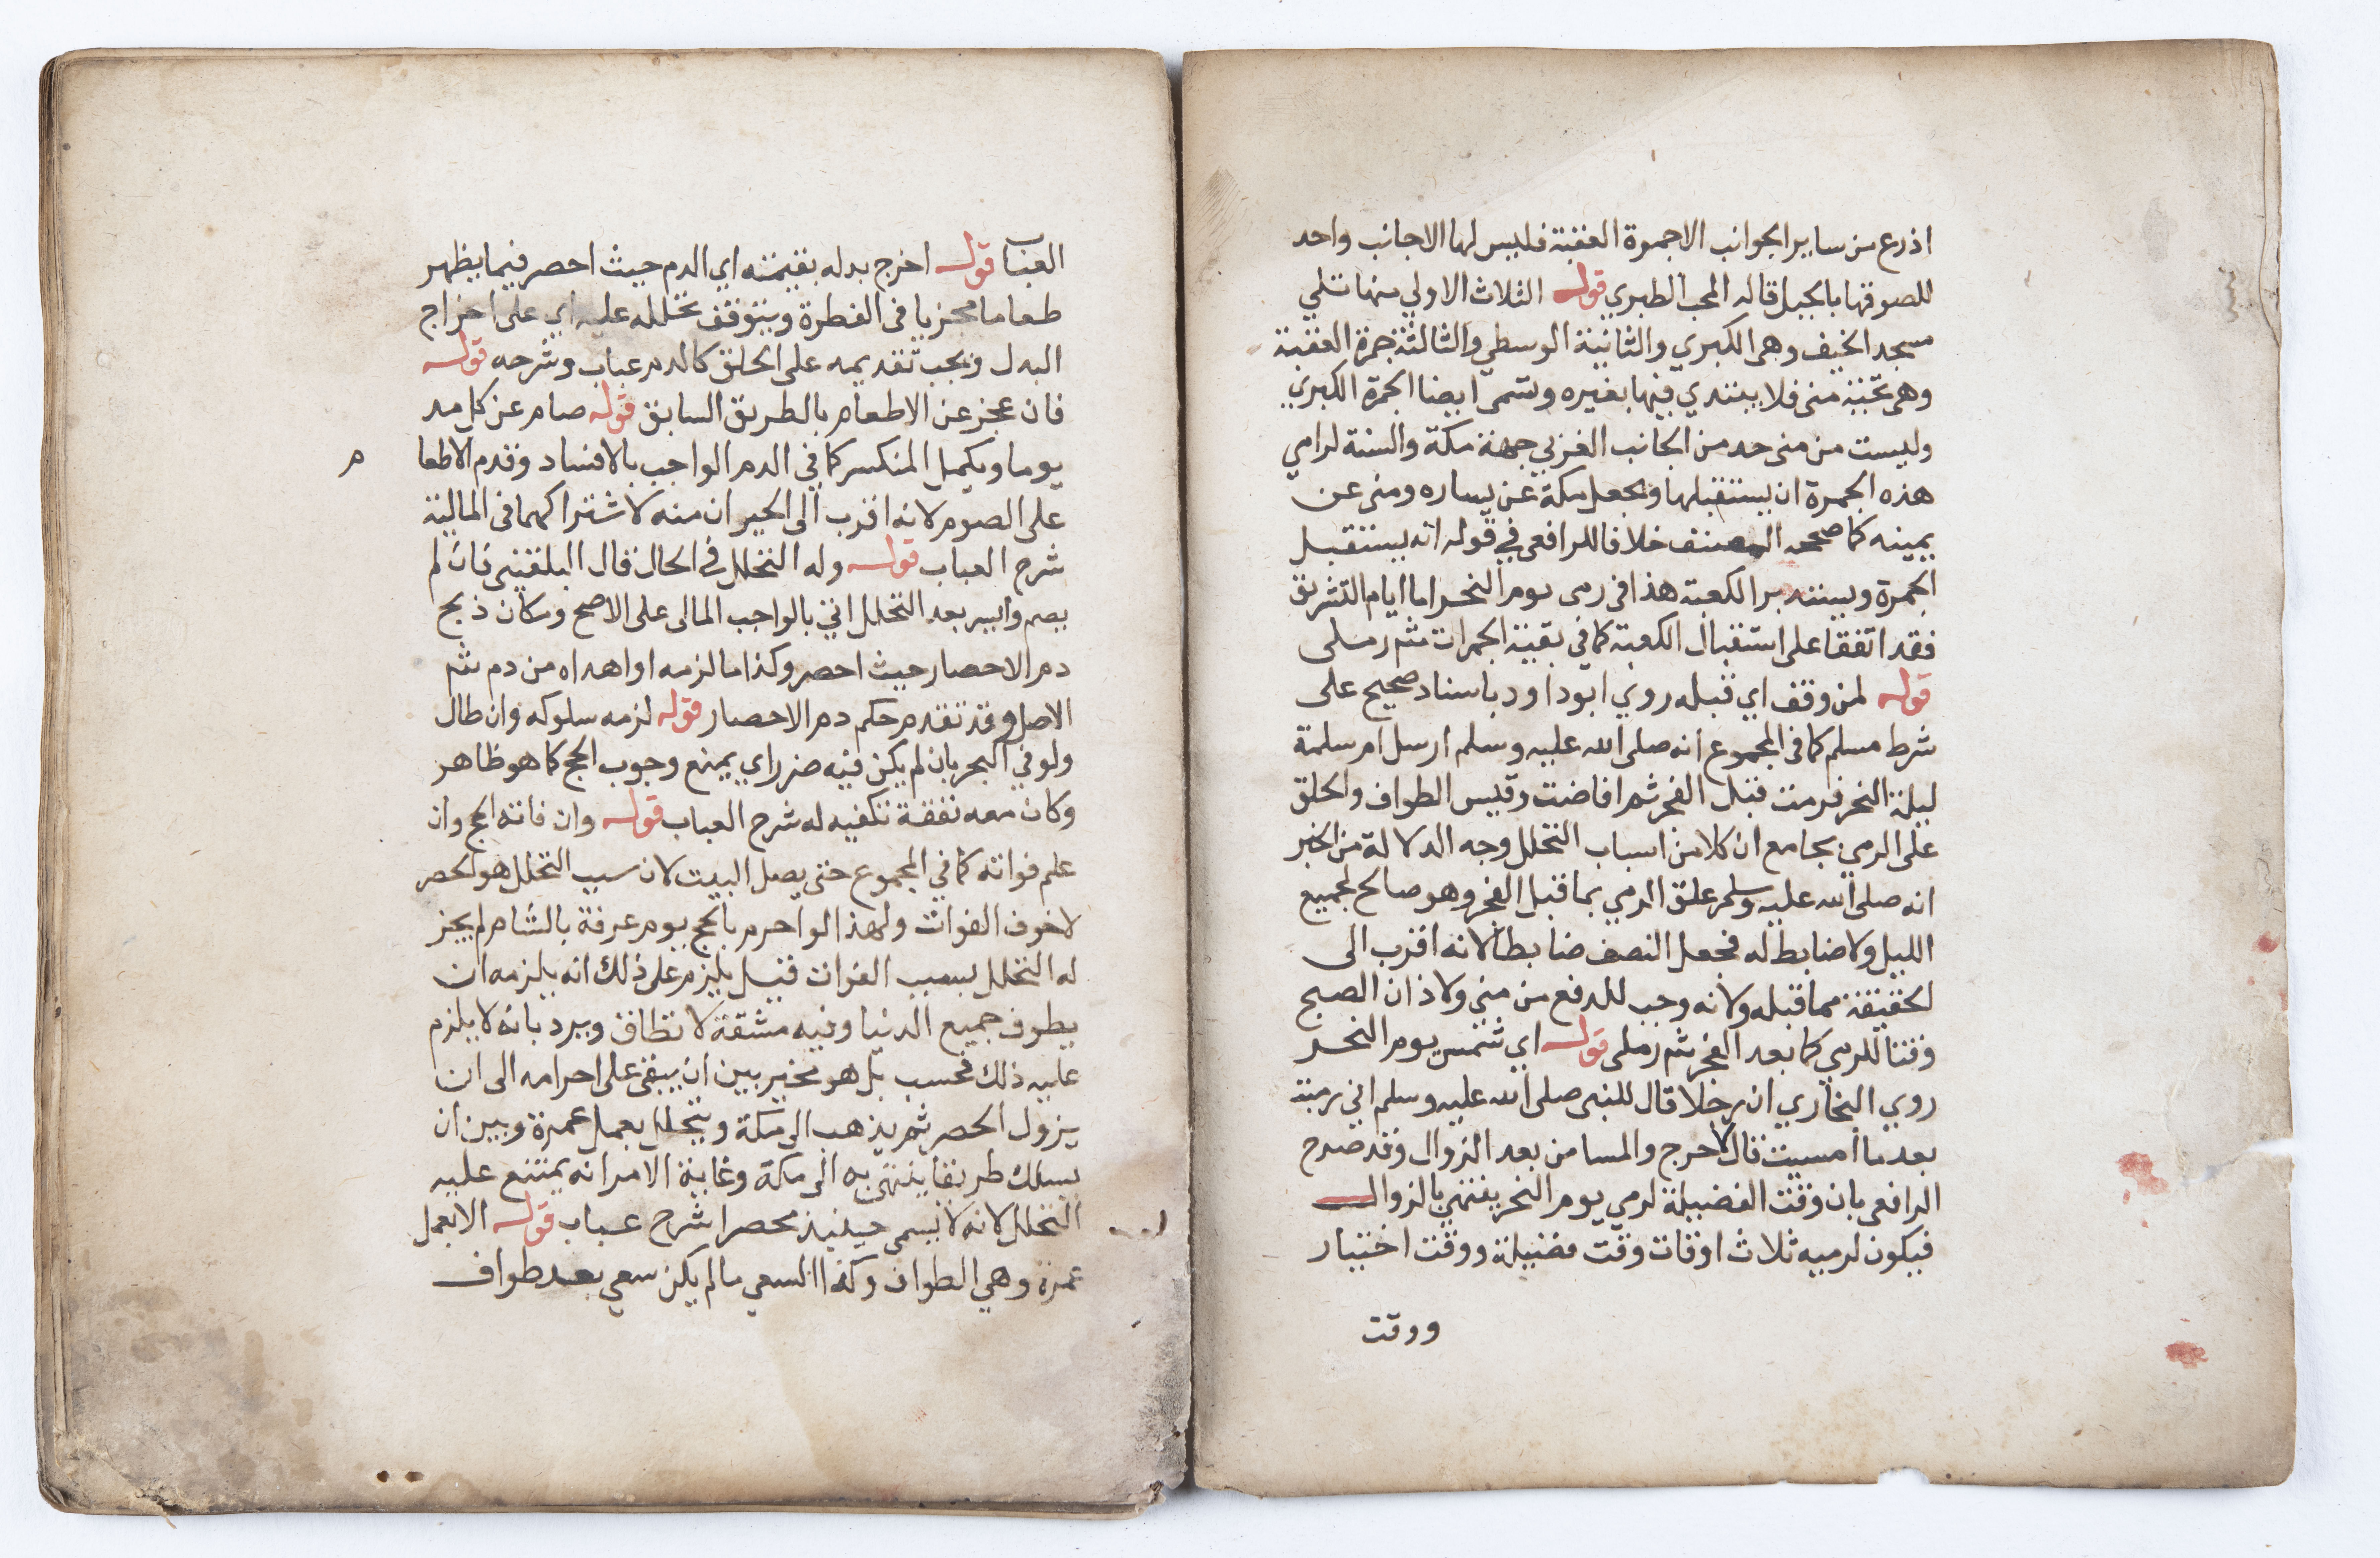 اذرع من ساير الجوانب الا جمرة العقبة فليس لها الا جانب واحد
للصوقها بالجبل قاله المحب الطبري قوله الثلاث الاولي منها تلي
مسجد الخيف وهي الكبري والثانية الوسطي والثالثة جمرة العقبة
وهي تحتية مني فلا يبتدي فيها بغيره وتسمى ايضا الجمرة الكبري
وليست من منى حد من الجانب الغربي جهة مكة والسنة لرامي
هذه الجمرة ان يستقبلها ويجعل مكة عن يساره ومنى عن
يمينه كما صححه المصنف خلافا للرافعي في قوله انه يستقبل
الجمرة ويستدبر الكعبة هذا في رمى يوم النحر اما ايام التشريق
فقد اتفقا على استقبال الكعبة كما في بقية الجمرات شم رملى
قوله لمن وقف اي قبله روي ابو داود باسناد صحيح على
شرط مسلم كما في المجموع انه صلى الله عليه وسلم ارسل ام سلمة
ليلة النحر فرمت قبل الفجر ثم افاضت وقيس الطواف والحلق
على الرمي بجامع ان كلا من اسباب التحلل وجه الدلالة من الخبر
انه صلى الله عليه وسلم علق الرمي بما قبل الفجر وهو صالح لجميع
الليل ولا ضابط له فجعل النصف ضابطا لانه اقرب الى
لحقيقة مما قبله ولانه وجب للدفع من منى ولاذان الصبح
وقتا للرمي كما بعد الفجر شم رملى قوله اي شمس يوم النحر
روي البخاري ان رجلا قال للنبى صلى الله عليه وسلم اني رميت
بعد ما امسيت قال لا حرج والمسا من بعد الزوال وقد صرح
الرافعى بان وقت الفضيلة لرمي يوم النحر ينتهي بالزوال
فيكون لرميه ثلاث اوقات وقت فضيلة ووقت اختيار
ووقت
العباب قوله اخرج بدله بقيمته اي الدم حيث احصر فيما يظهر
طعاما مجزيا فى الفطرة ويتوقف تحلله عليه اي على اخراج
البدل ويجب تقديمه على الحلق كالدم عباب وشرحه قوله
فان عجز عن الاطعام بالطريق السابق قوله صام عن كل مد
يوما ويكمل المنكسر كما في الدم الواجب بالافساد وقدم الاطعا م
على الصوم لانه اقرب الى الحيوان منه لاشتراكهما في المالية
شرح العباب قوله وله التحلل في الحال قال البلقيني فان لم
يصم وايسر بعد التحلل اتي بالواجب المالى على الاصح ومكان ذبح
دم الاحصار حيث احصر وكذا ما لزمه او اهداه من دم شم
الاصل وقد تقدم حكم دم الاحصار قوله لزمه سلوكه وان طال
ولو في البحر بان لم يكن فيه ضرر اي يمنع وجوب الحج كما هو ظاهر
وكان معه نفقة تكفيه له شرح العباب قوله وان فاته الحج وان
علم فواته كما في المجموع حتى يصل البيت لان سبب التحلل هو لحصر
لا خوف الفوات ولهذا لو احرم بالحج يوم عرفة بالشام لم يجز
له التحلل بسبب الفوات قيل يلزم على ذلك انه يلزمه ان
يطوف جميع الدنيا وفيه مشقة لا تطاق ويرد بانه لا يلزم
عليه ذلك فحسب بل هو مخير بين ان يبقى على احرامه الى ان
يزول الحصر ثم يذهب الى مكة ويتحلل بعمل عمرة وبين ان
يسلك طريقا ينتهى به الى مكة وغاية الامر انه يمتنع عليه
التحلل لانه لا يسمى حينيذ محصرا شرح عباب قوله الا بعمل
عمرة وهي الطواف وكذا السعي ما لم يكن سعي بعد طواف